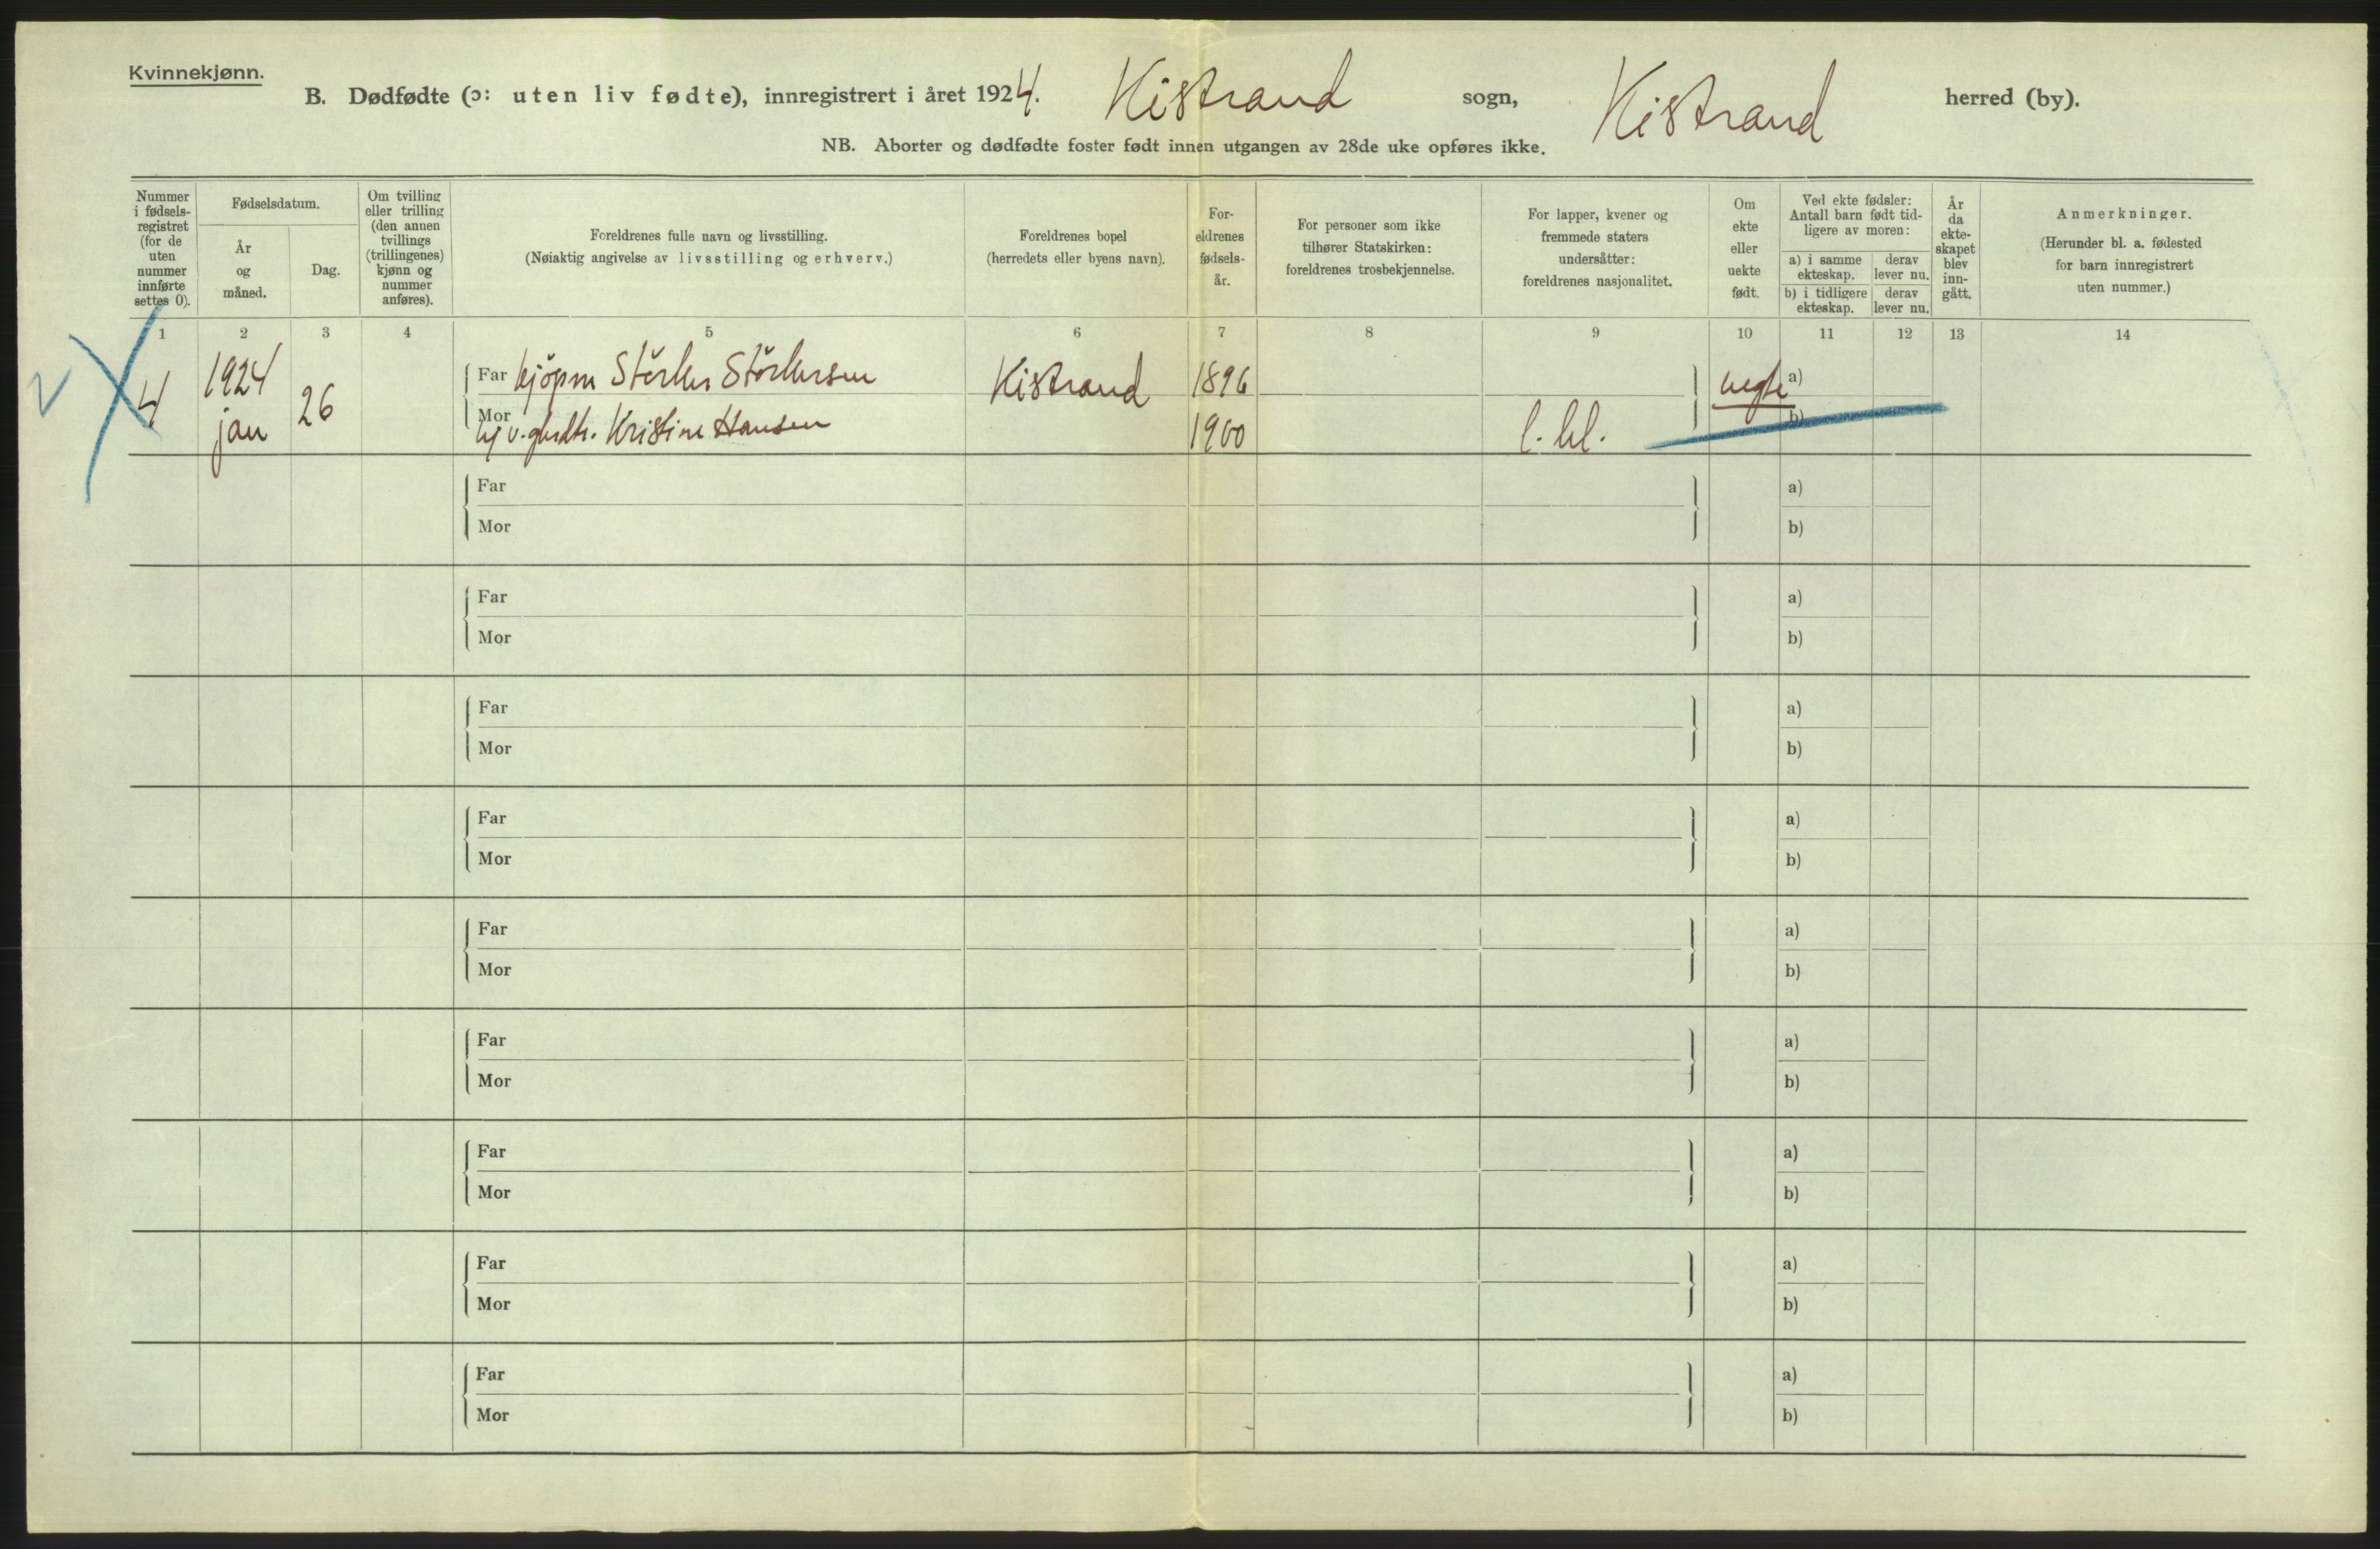 Kvinnekjønn.
B. Dødfødte (ɔ: uten liv fødte), innregistrert i året 1924. Kistrand sogn, Kistrand herred (by).
NB. Aborter og dødfødte foster født innen utgangen av 28de uke opføres ikke.
Nummer i fødsels-registret (for de uten nummer innførte settes 0).
Fødselsdatum.
År og måned.
Dag.
Om tvilling eller trilling (den annen tvillings (trillingenes) kjønn og nummer anføres).
Foreldrenes fulle navn og livsstilling.
(Nøiaktig angivelse av livsstilling og erhverv.)
Foreldrenes bopel
(herredets eller byens navn).
For-eldrenes fødsels-år.
For personer som ikke tilhører Statskirken: foreldrenes trosbekjennelse.
For lapper, kvener og fremmede staters undersåtter: foreldrenes nasjonalitet.
Om ekte eller uekte født.
Ved ekte fødsler: Antall barn født tid-ligere av moren:
a) i samme ekteskap. derav lever nu.
b) i tidligere ekteskap. derav lever nu.
År da ekte-skapet blev inn-gått.
Anmerkninger.
(Herunder bl. a. fødested for barn innregistrert uten nummer.)
1 2 3 4 5 6 7 8 9 10 11 12 13 14
4 1924 jan 26
Far kjöpm Kistrand 1896 uegte a)
Mor Kristine Hansen 1900 b)
Far a)
Mor b)
Far a)
Mor b)
Far a)
Mor b)
Far a)
Mor b)
Far a)
Mor b)
Far a)
Mor b)
Far a)
Mor b)
Far a)
Mor b)
Far a)
Mor b)